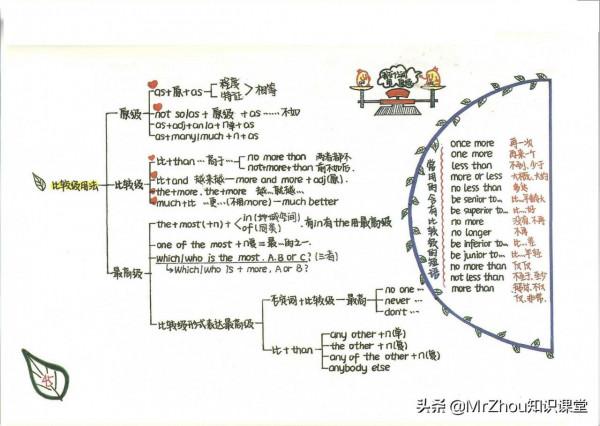 比较级用法
原级
as+原+as
程度
特征
相等
not so/as + 原级 + as ……不如
as+adj+an/a+n单+as
as+many/much+n+as
比较级
比+than … 高于…
no more than 两者都不
not more than 前不如后.
比+and 越来越— more and more + adj(原).
the+more. the+more 越…就越…
much+比 …更…(不用more) — much better
最高级
the+most(+n)+
in(地域空间)
of(同类)
有in有the用最高级
one of the most +n复=最…的之一.
which/who is the most, A, B or C? (三者)
Which/who is + more, A or B?
比较级形式表达最高级
否定词+比较级=最高
no one …
never …
don't …
比+than
any other +n(单)
the other +n(复)
any of the other +n(复)
anybody else
常用的含有比较级的短语
once more 再一次
one more 再来一个
less than 不到,少于
more or less 大概,大约
no less than 多达
be senior to… 比…年龄大
be superior to… 比…好
no more 没有,不再
no longer 不再
be inferior to… 比…差
be junior to… 比…年轻
no more than 仅仅
not less than 不亚于,至少
more than
45
头条 @MrZhou知识课堂